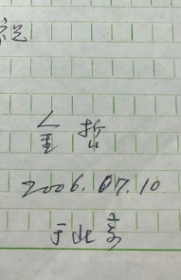 金哲
2006.07.10
于北京